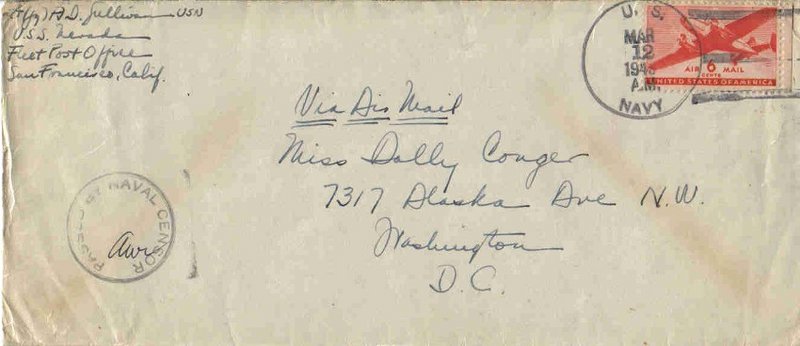 A. D. Sullivan USN
U.S.S. Nevada
Fleet Post Office
San Francisco, Calif.
U. S.
MAR
12
A.M.
NAVY
AIR 6 MAIL
CENTS
UNITED STATES OF AMERICA
Via Air Mail
Miss Dolly Conger
7317 Alaska Ave N.W.
Washington
D.C.
PASSED BY NAVAL CENSOR